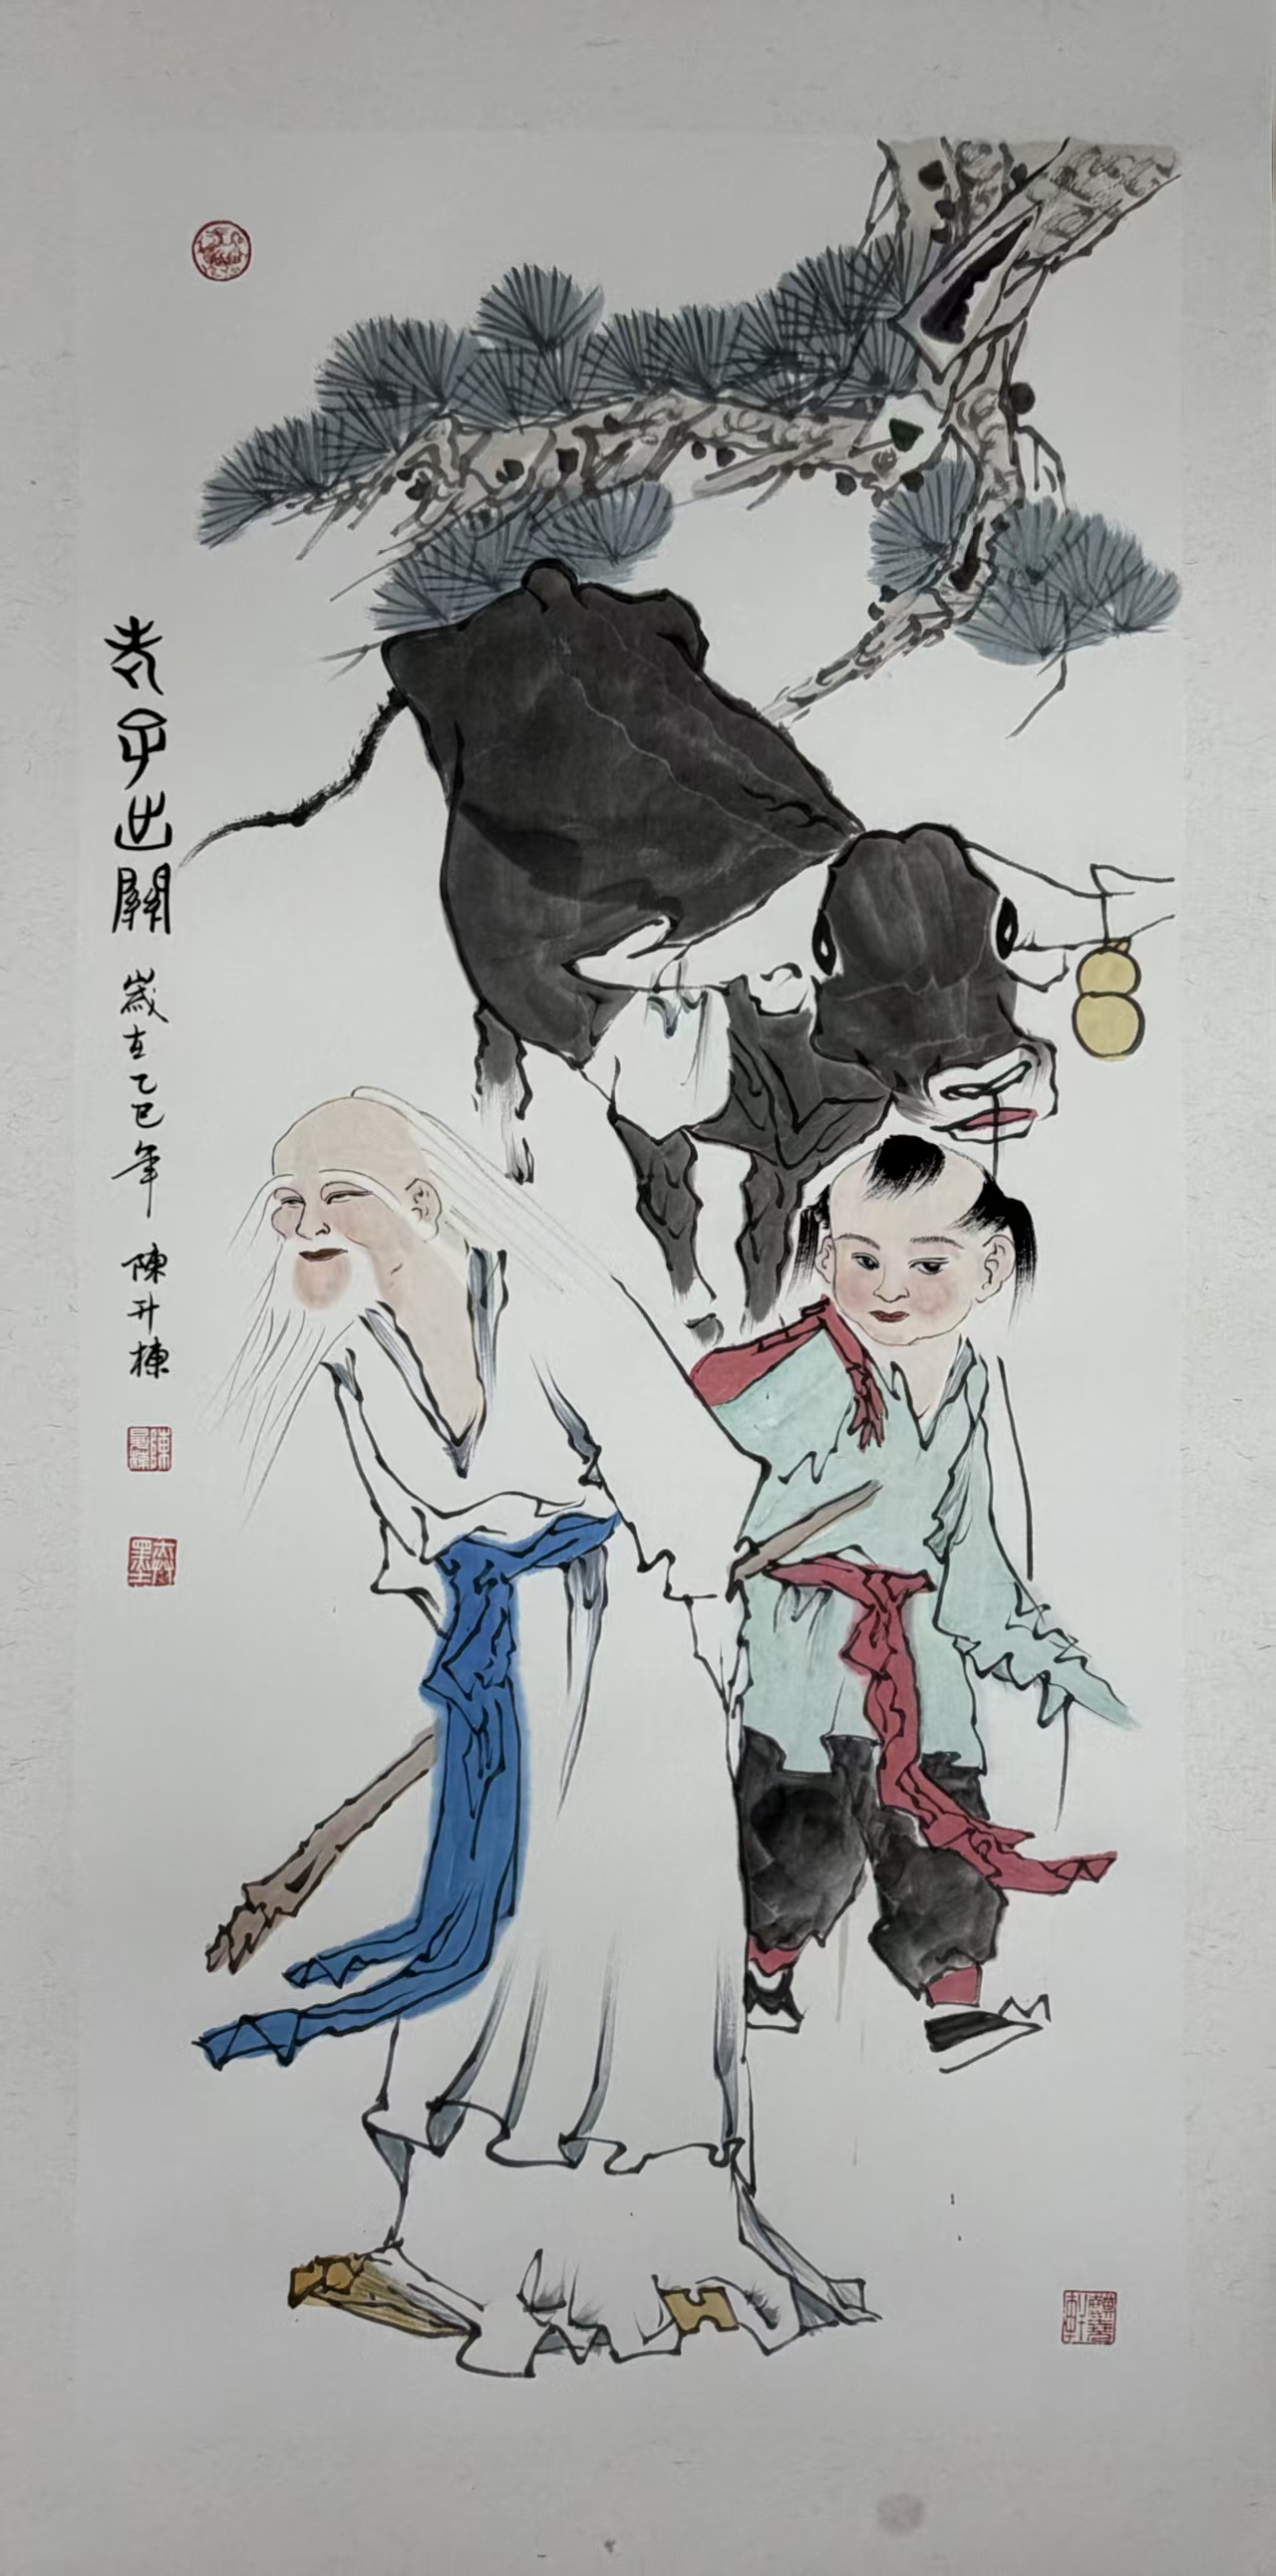 老子出關
歲在乙巳年 陳升棟